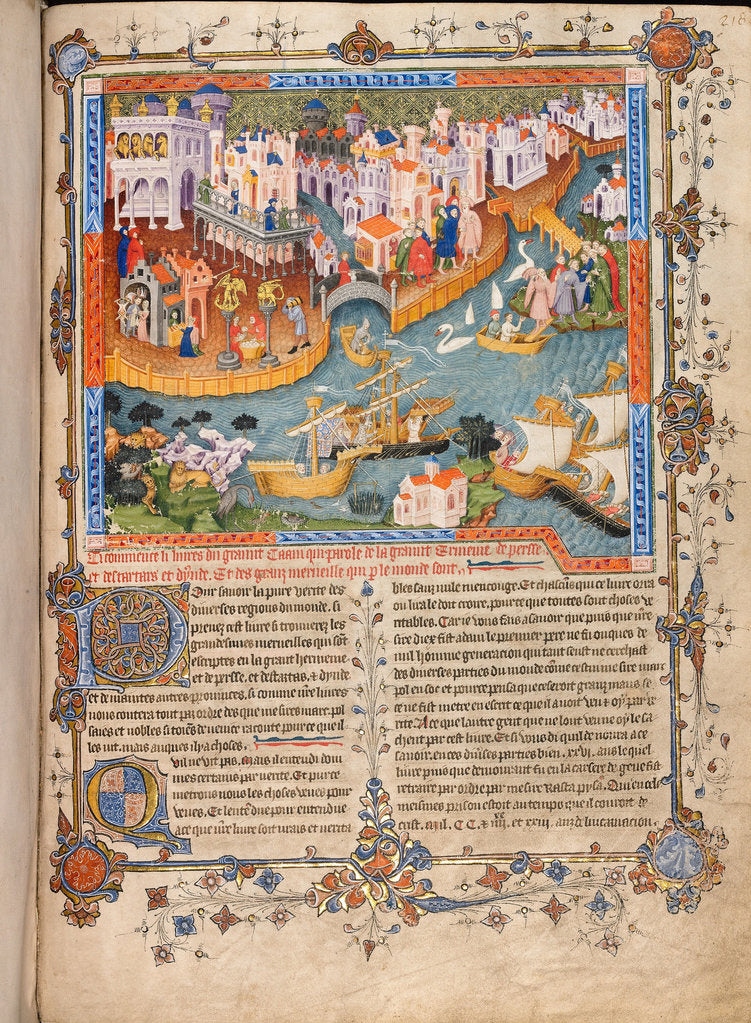 218
Ci commence li livres du graunt Caam qui parole de la graunt Ermenie de persse
et des tartars et dynde. Et des granz merveille qui p le monde sont.
Pour savoir la pure verite des
diverses regions du monde. si
prenez cest livre si trouverez les
grandesmes mervelles qui sont
escriptes en la grant hermenie
et de persse. et des tartas, & dynde
et de maintes autres provinces, si comme nre livres
nous contera tout par ordre des que mesires marc pol
saies et nobles citoiens de venice raconte pource que il
les vit. mais auques il y a choses.
Quil ne vit pas. Mais il entendi dou
mes certains par verite. Et pur ce
metrons nous les choses veues pour
veues. Et lentendue pour entendue
ace que nre livre soit vrais et verita
bles sanz nule mencouge. Et chascuns qui ce livre orra
ou lira le doit croire, pource que toutes sont choses ve
ritables. Car ie vous fais a savoir que puis que nre
sire diex fist adam le premier pere ne fu onques de
nul homme generacion qui tant seust ne cerchast
des diverses parties du monde come cestui me sire marc
pol en soc et pource pensa que ce seroit granz maus se
ce ne fust metre en escrit ce que il avoit veu & oy par ve
rite. A ce que lautre gent que ne lont veu ne oy le sa
chent par cest livre. Et si vous di quil demora a ce
savoir. en ces diverses parties bien. xxvi. ans le quel
livre puis que demourant fu en la carsere de gene fist
retraire par ordre par mesire Rasta pysa. Qui en cele
meismes prison estoit au temps que il couroit de
crist. Mil. CC. & xviii. et xxiii. anz de lincarnacion.